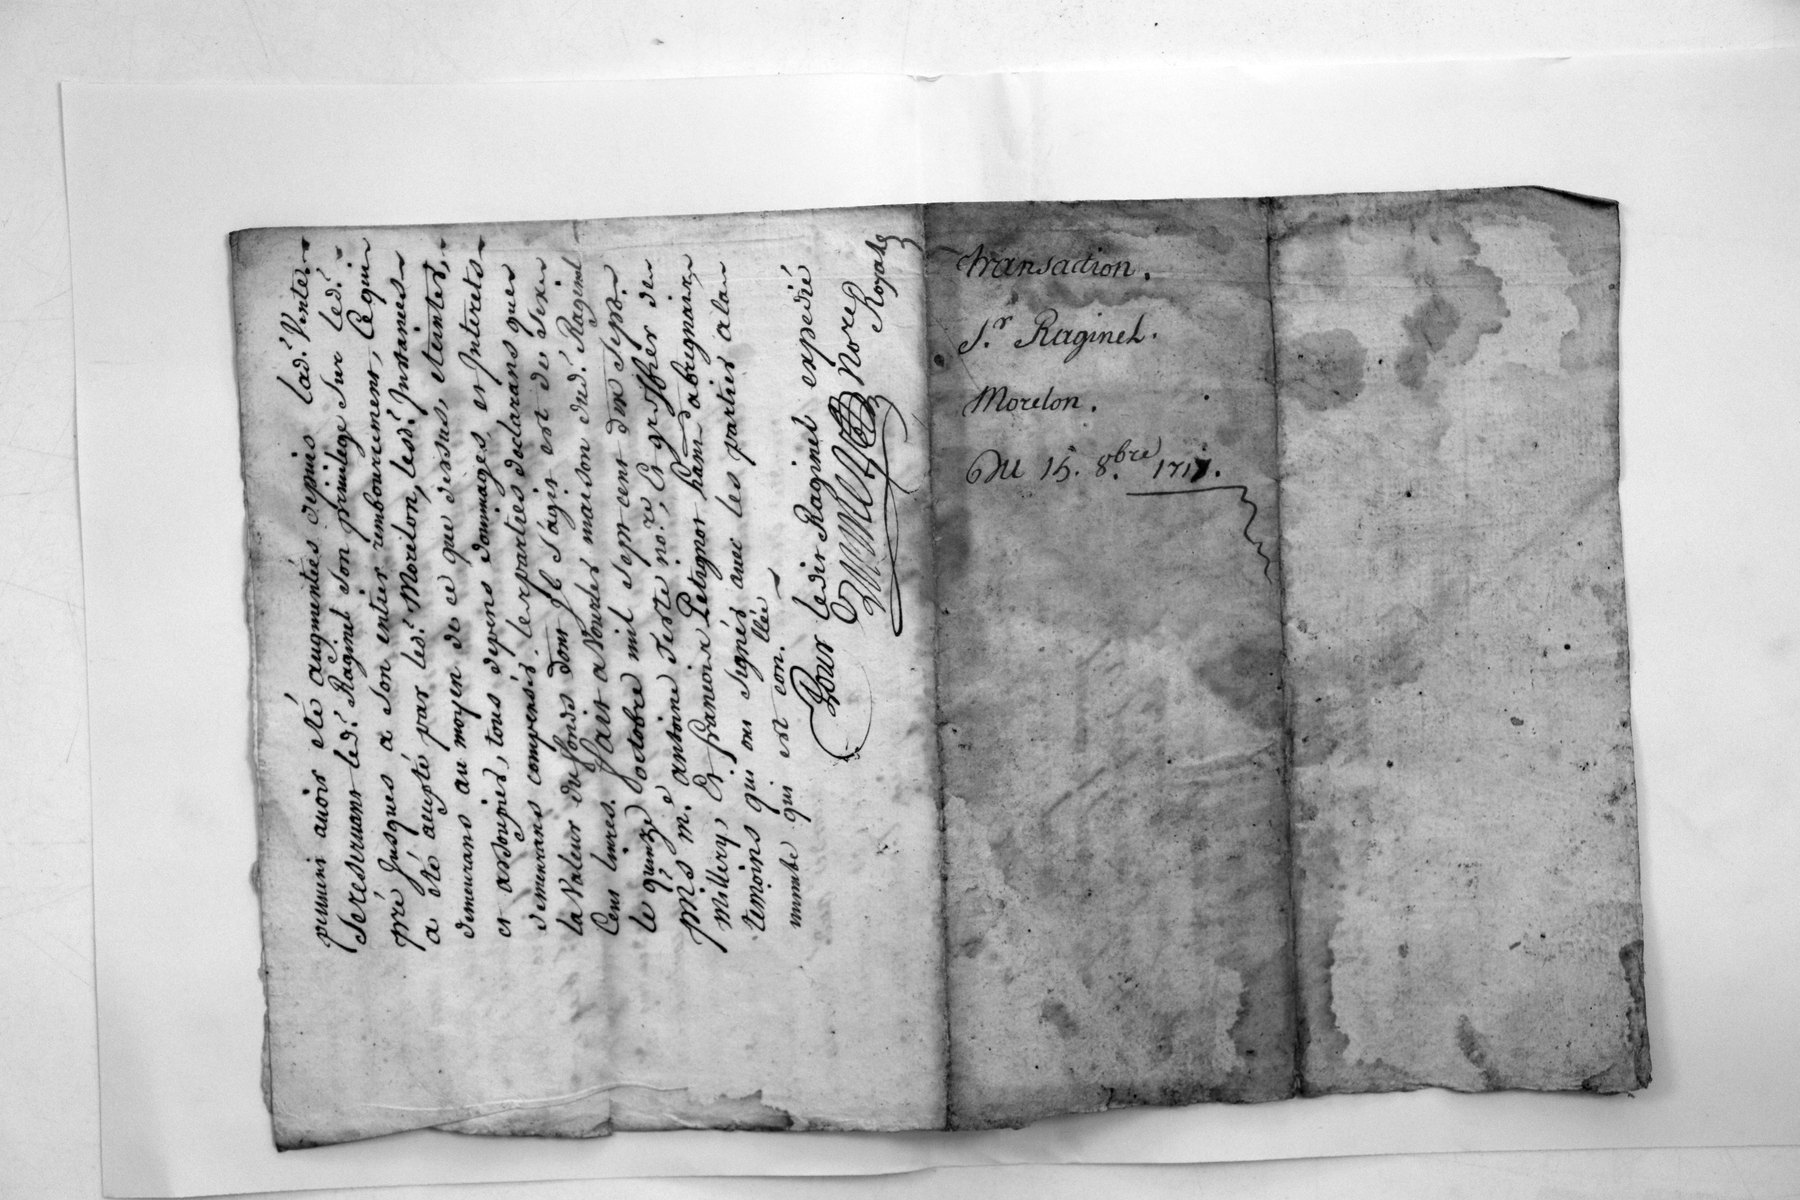 avoir eté augmentées depuis lad.^e Vente
se reservant led.^t Raginel son privilege sur led.^t
pré jusques a son entier remboursement, Ce qui
a eté accepté par led.^t Morelon, lesd.^t Instances
demeurans au moyen de ce que dessus, eteintes,
et assoupies, tous depens dommages et Interets
demeurans compensés. les parties declarans que
la valeur du fonds dont Il s'agit est de
Cens livres. fait a Vourles maison dud.^t Raginel
le quinze octobre mil sept cent dix sept.
pnts m.^e antoine no.^re Et greffier de
millery, Et francois Petignot
temoins qui ont signés avec les parties a la
minute qui est con.^llée
Pour ledit Raginel expedié
no^re Royal
Transaction.
S.^r Raginel.
Morelon.
Du 15. 8.^bre 1717.